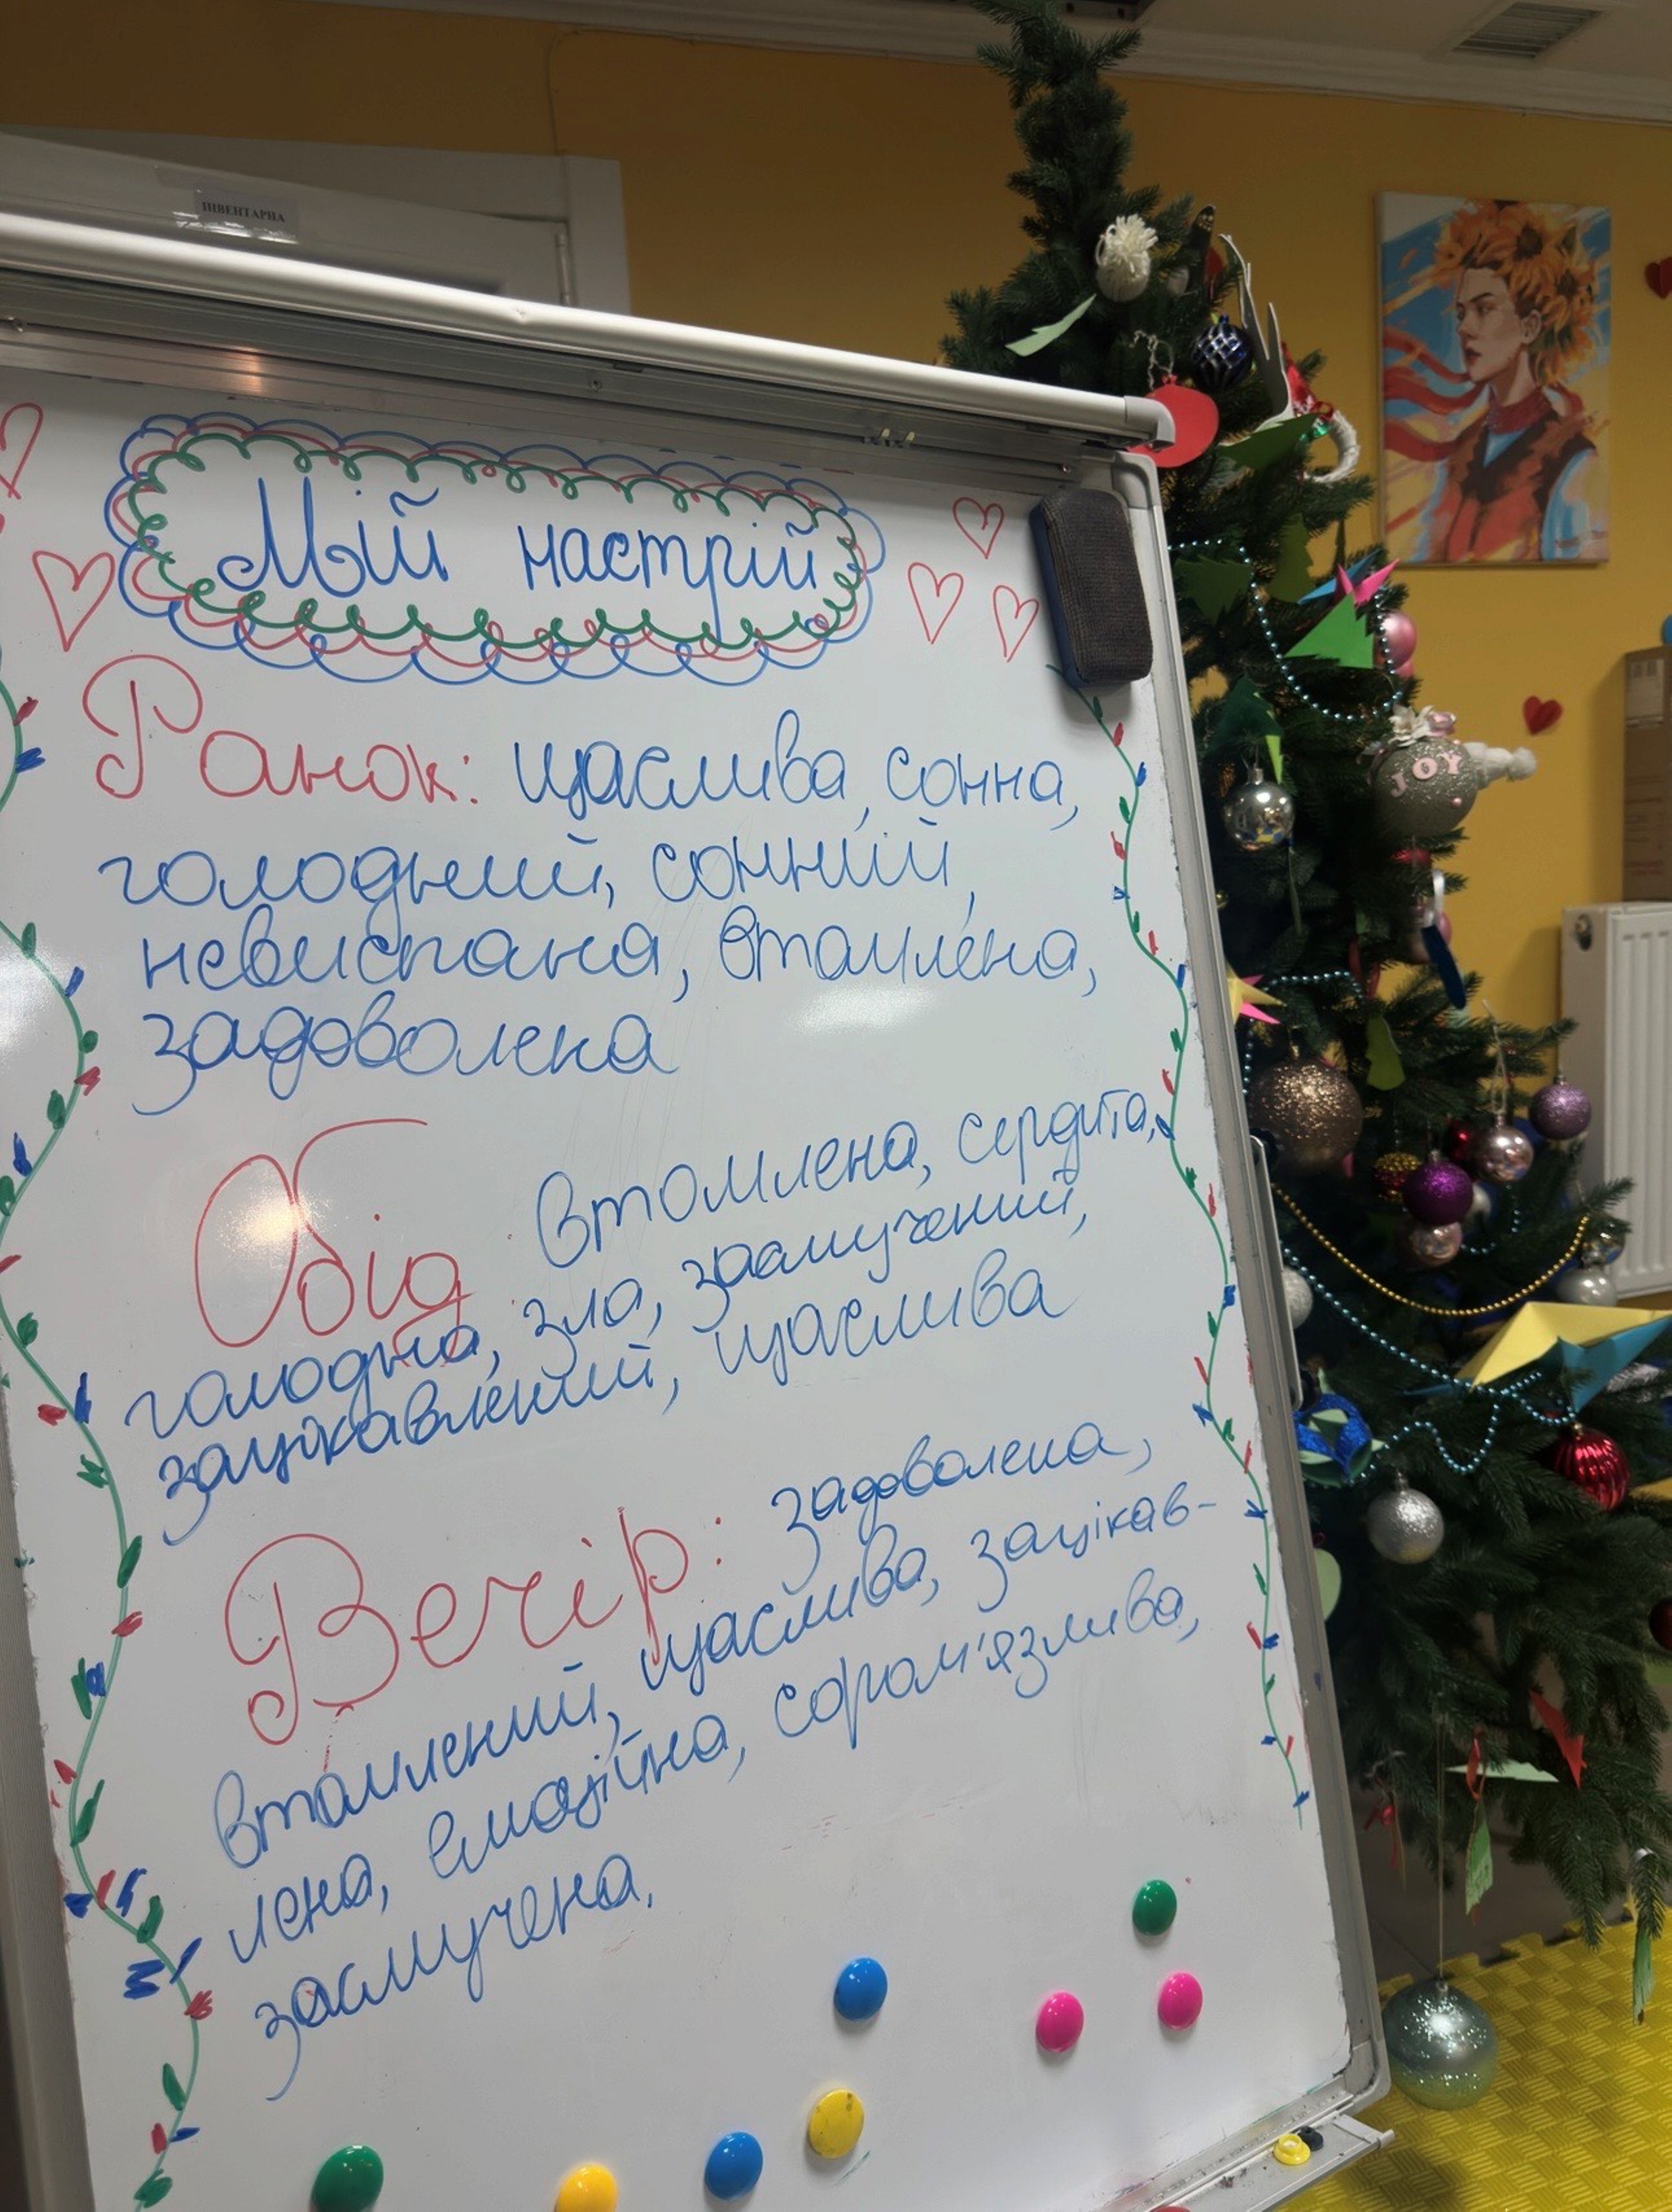 ІНВЕНТАРНА
Мій настрій
Ранок: щаслива, сонна,
голодний, сонний,
невиспана, втомлена,
задоволена
Обід втомлена, сердита,
голодна, зла, засмучений,
зацікавлений, щаслива
Вечір: задоволена,
втомлений, щаслива, зацікав-
лена, емоційна, сором'язлива,
засмучена.
JOY